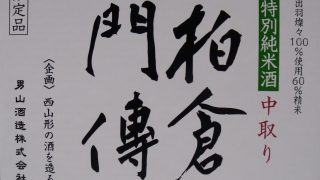 出羽燦々100%使用60%精米
特別純米酒 中取り
柏倉
門傳
〈企画〉西山形の酒を造る
男山酒造株式会社
定品